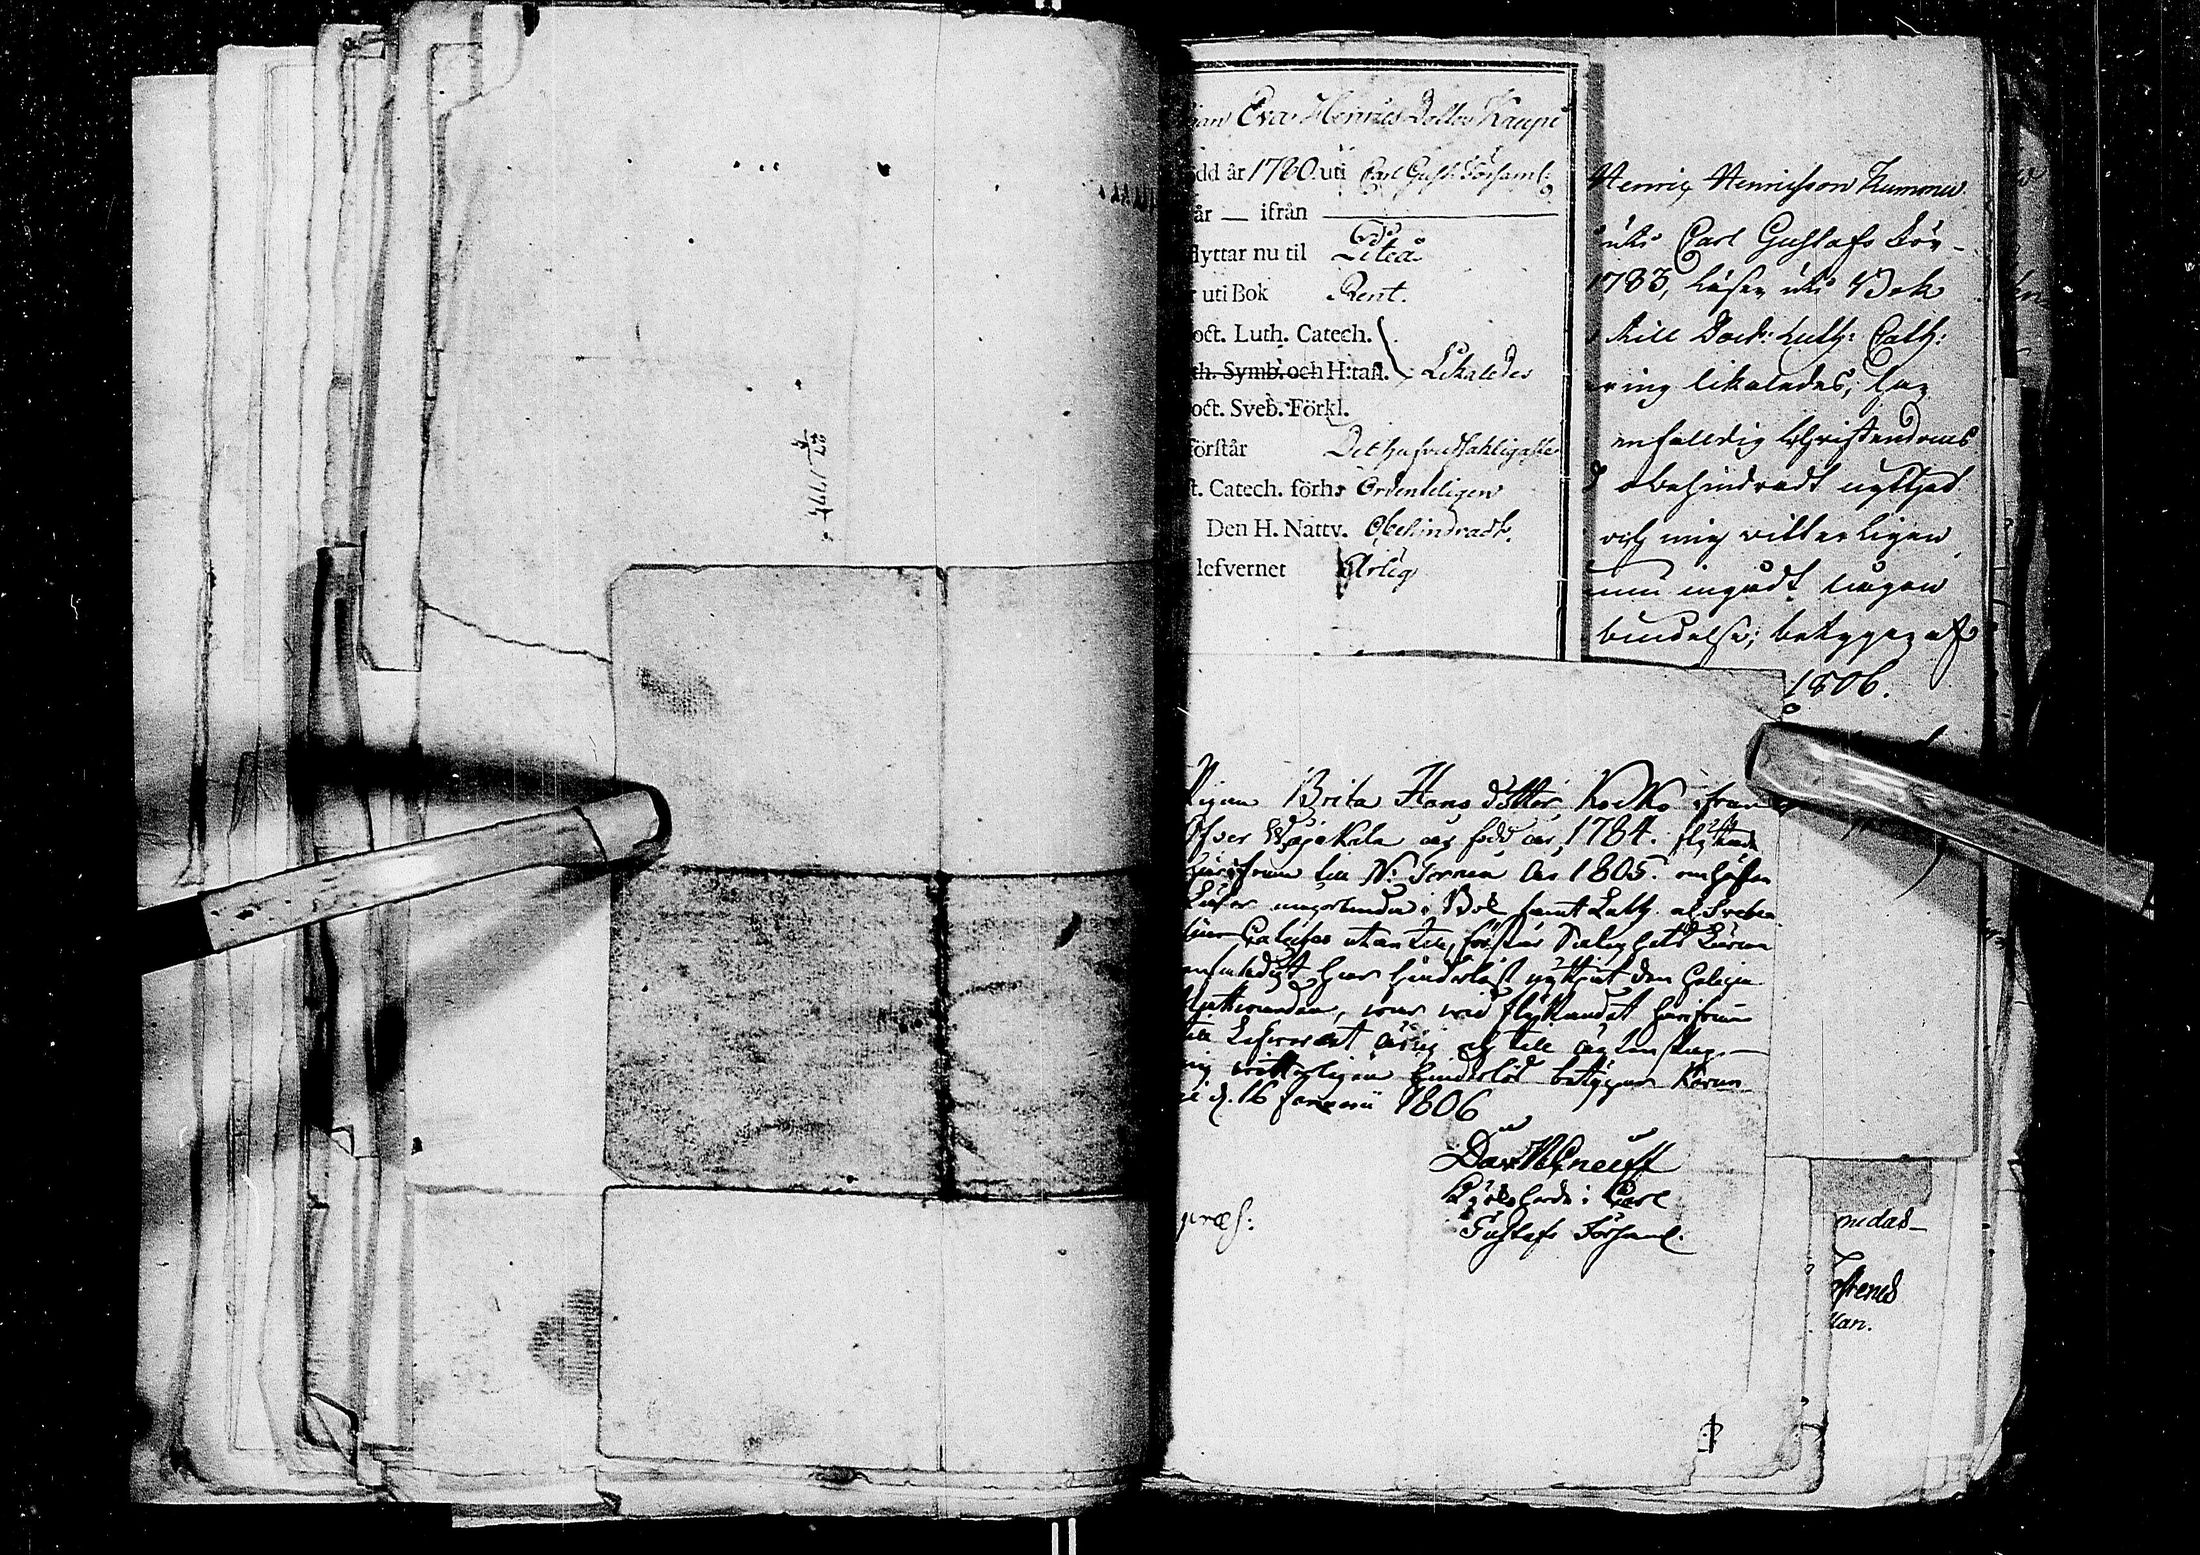 Eva Henrics Dotter Kaupi
dd år 1760 uti Carl Gust. Församl:
år — ifrån
flyttar nu til Piteå
uti Bok Rent.
oct. Luth. Catech.
th. Symb. och H:tafl. Likaledes
oct. Sveb. Förkl.
förstår Det hufvudsakligaste
t. Catech. förh. Ordenteligen
Den H. Nattv. Obehindradt.
lefvernet Ärlig
Henric Henricsson Kummu
uti Carl Gustafs För-
1783, läser uti Bok
till Doct: Luth: Cath:
ring likaledes, har
enfalldig Christendoms
obehindradt nyttjat
och mig vitterligen
nu ingådt någon
bindelse; betygar af
1806.
Pigan Brita Hans dotter Kocko ifrån
Öfver Wojakala är född år 1784. flyttade
härifrån till N: Tornio år 1805. om hösten
Läser i Bok samt Luth. och Svebe
Catechs utantill, förstår Salighets Läran
enfaldigt har hinderlöst nyttjat den helige
Nattvarden, var vid flyttandet härifrån
till Lefvernet ärlig och till äktenskap
mig vitterligen hinderlös betygar Karun-
gi d. 16 Januarii 1806
Dav: Wegneuss
Kyrkoherde i Carl
Gustafs Församl.
præs:
medas-
stens